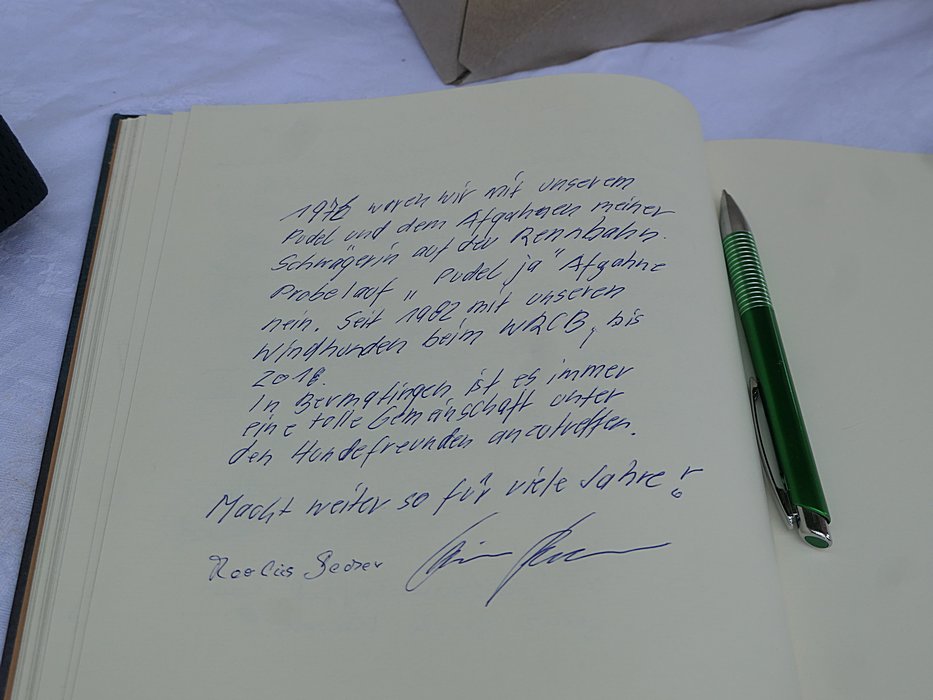 1976 waren wir mit unserem
Pudel und dem Afgahnen meiner
Schwägerin auf der Rennbahn.
Probelauf „ Pudel ja " Afgahne
nein. Seit 1982 mit unseren
Windhunden beim WRCB, bis
2018.
In Bermatingen ist es immer
eine tolle Gemeinschaft unter
den Hundefreunden anzutreffen.
Macht weiter so für viele Jahre!